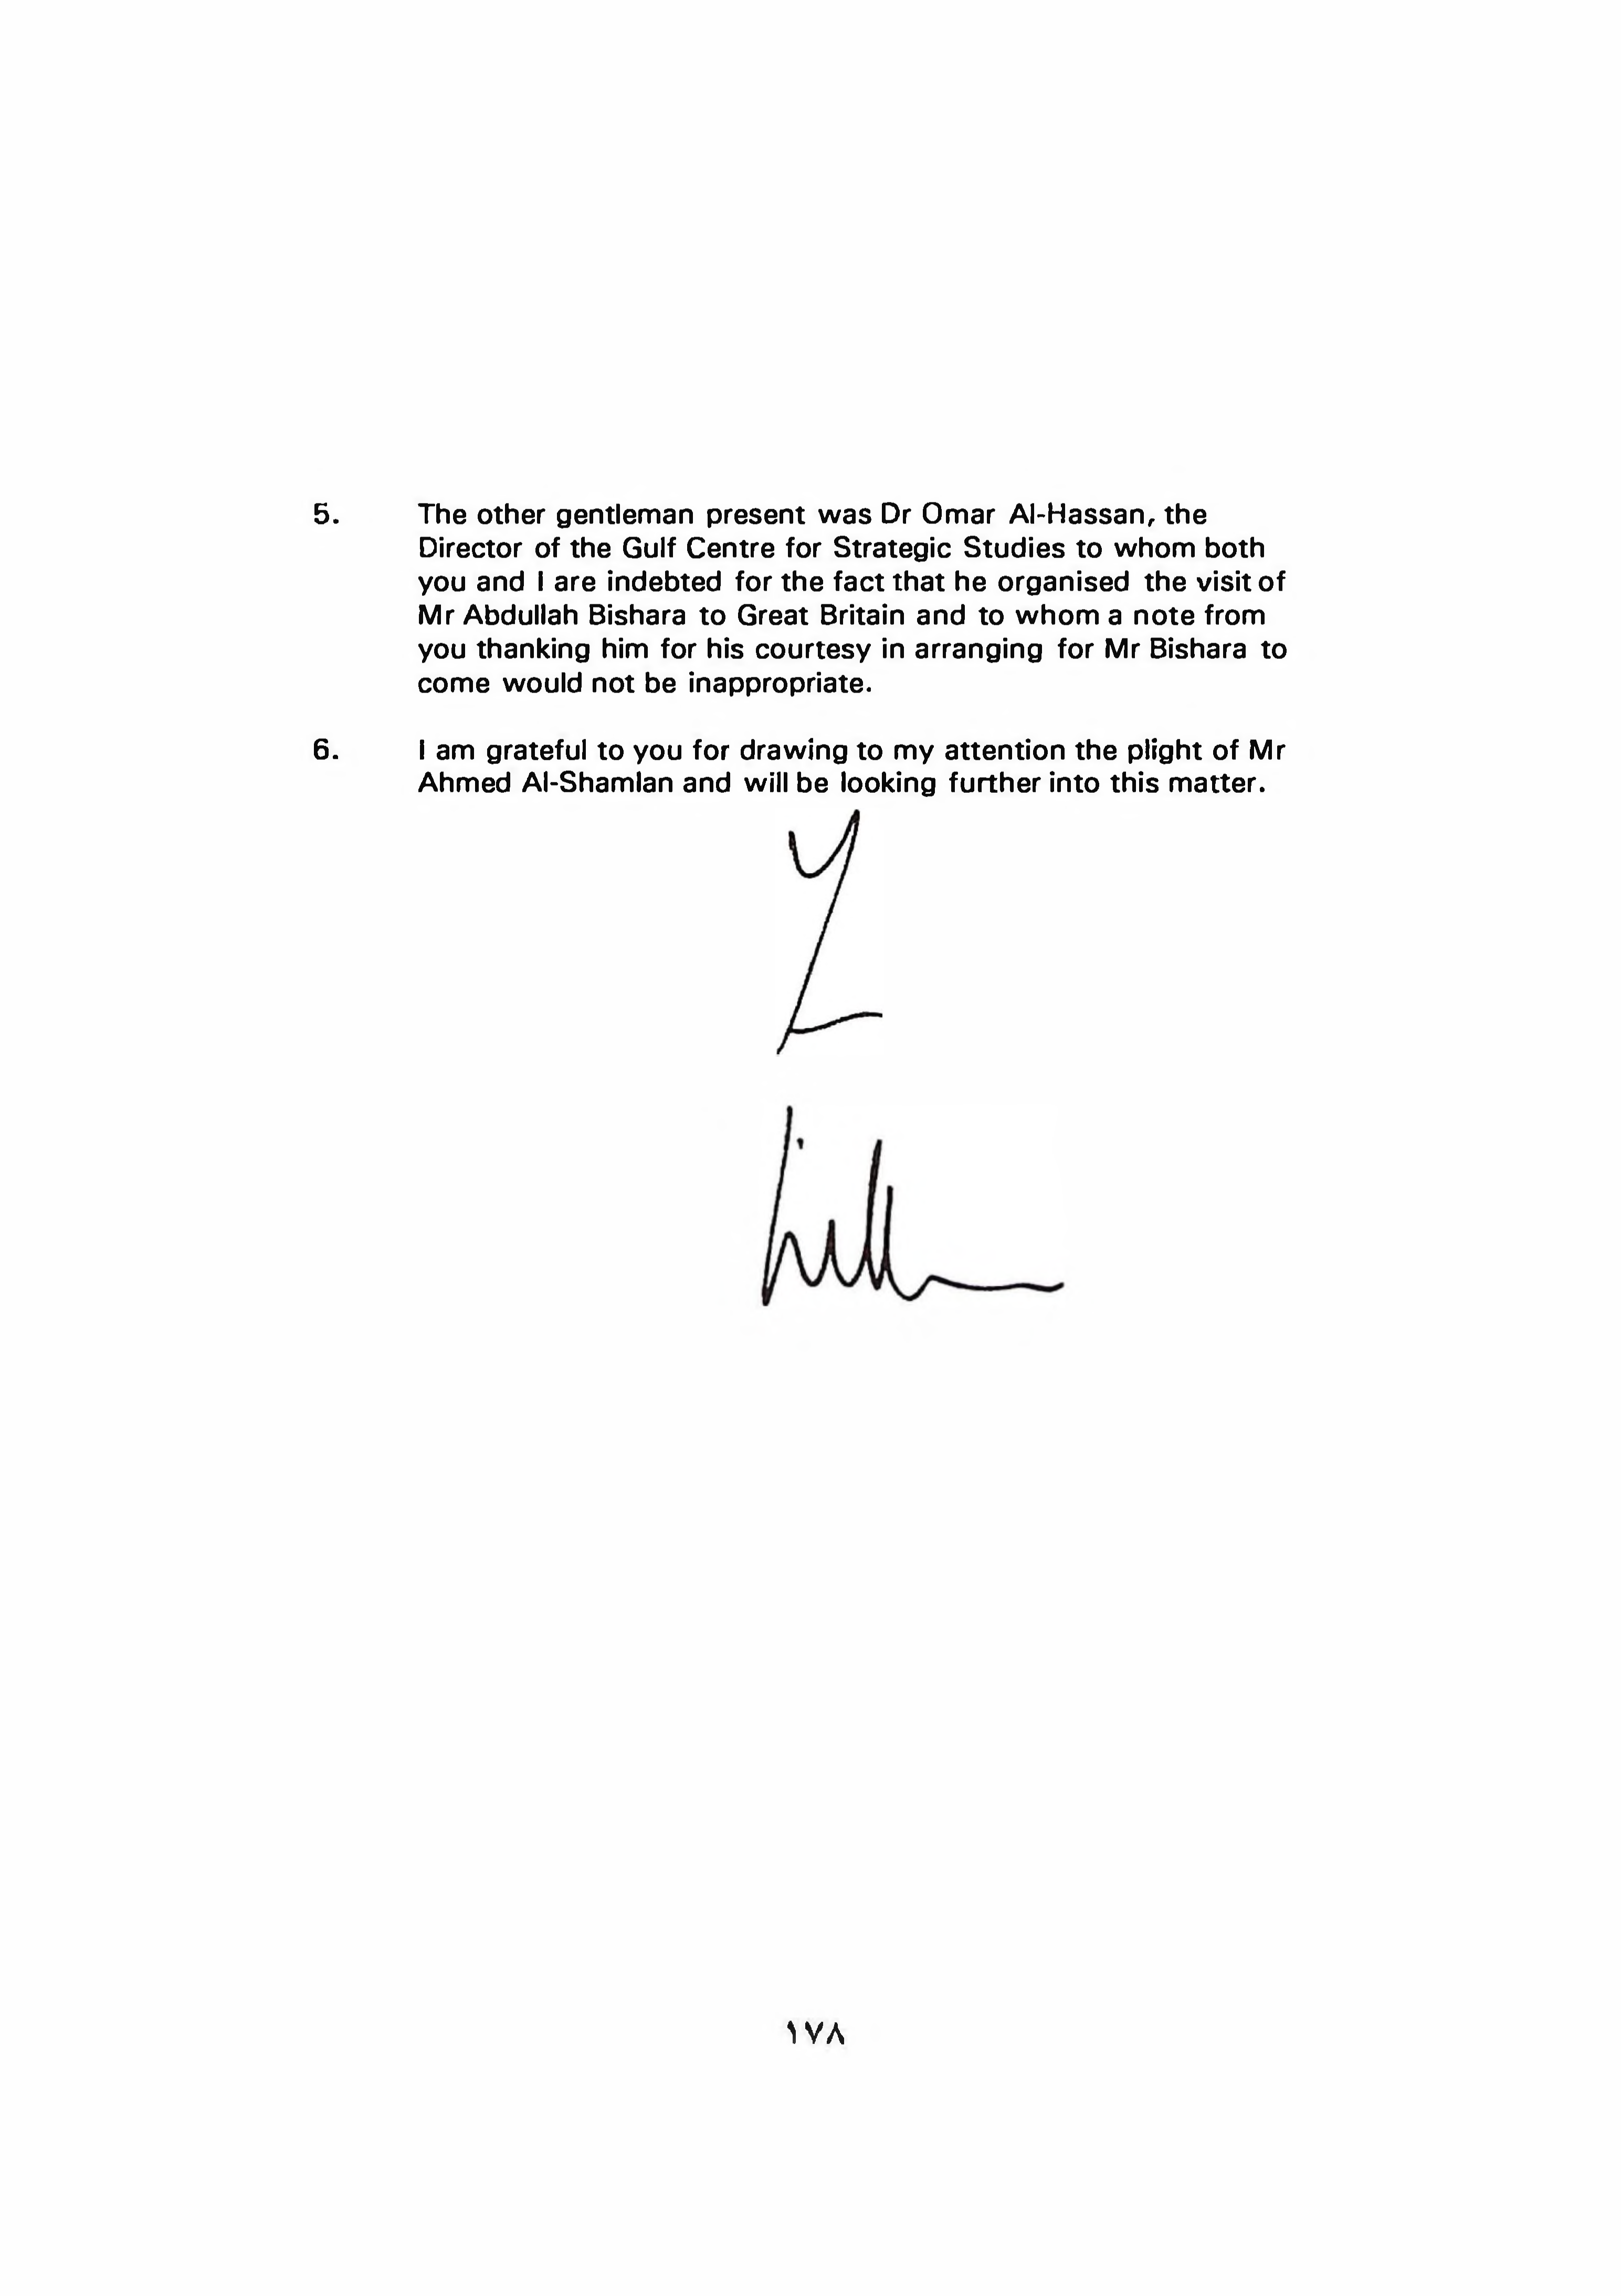 5. The other gentleman present was Dr Omar Al-Hassan, the
Director of the Gulf Centre for Strategic Studies to whom both
you and I are indebted for the fact that he organised the visit of
Mr Abdullah Bishara to Great Britain and to whom a note from
you thanking him for his courtesy in arranging for Mr Bishara to
come would not be inappropriate.
6. I am grateful to you for drawing to my attention the plight of Mr
Ahmed Al-Shamlan and will be looking further into this matter.
١٧٨